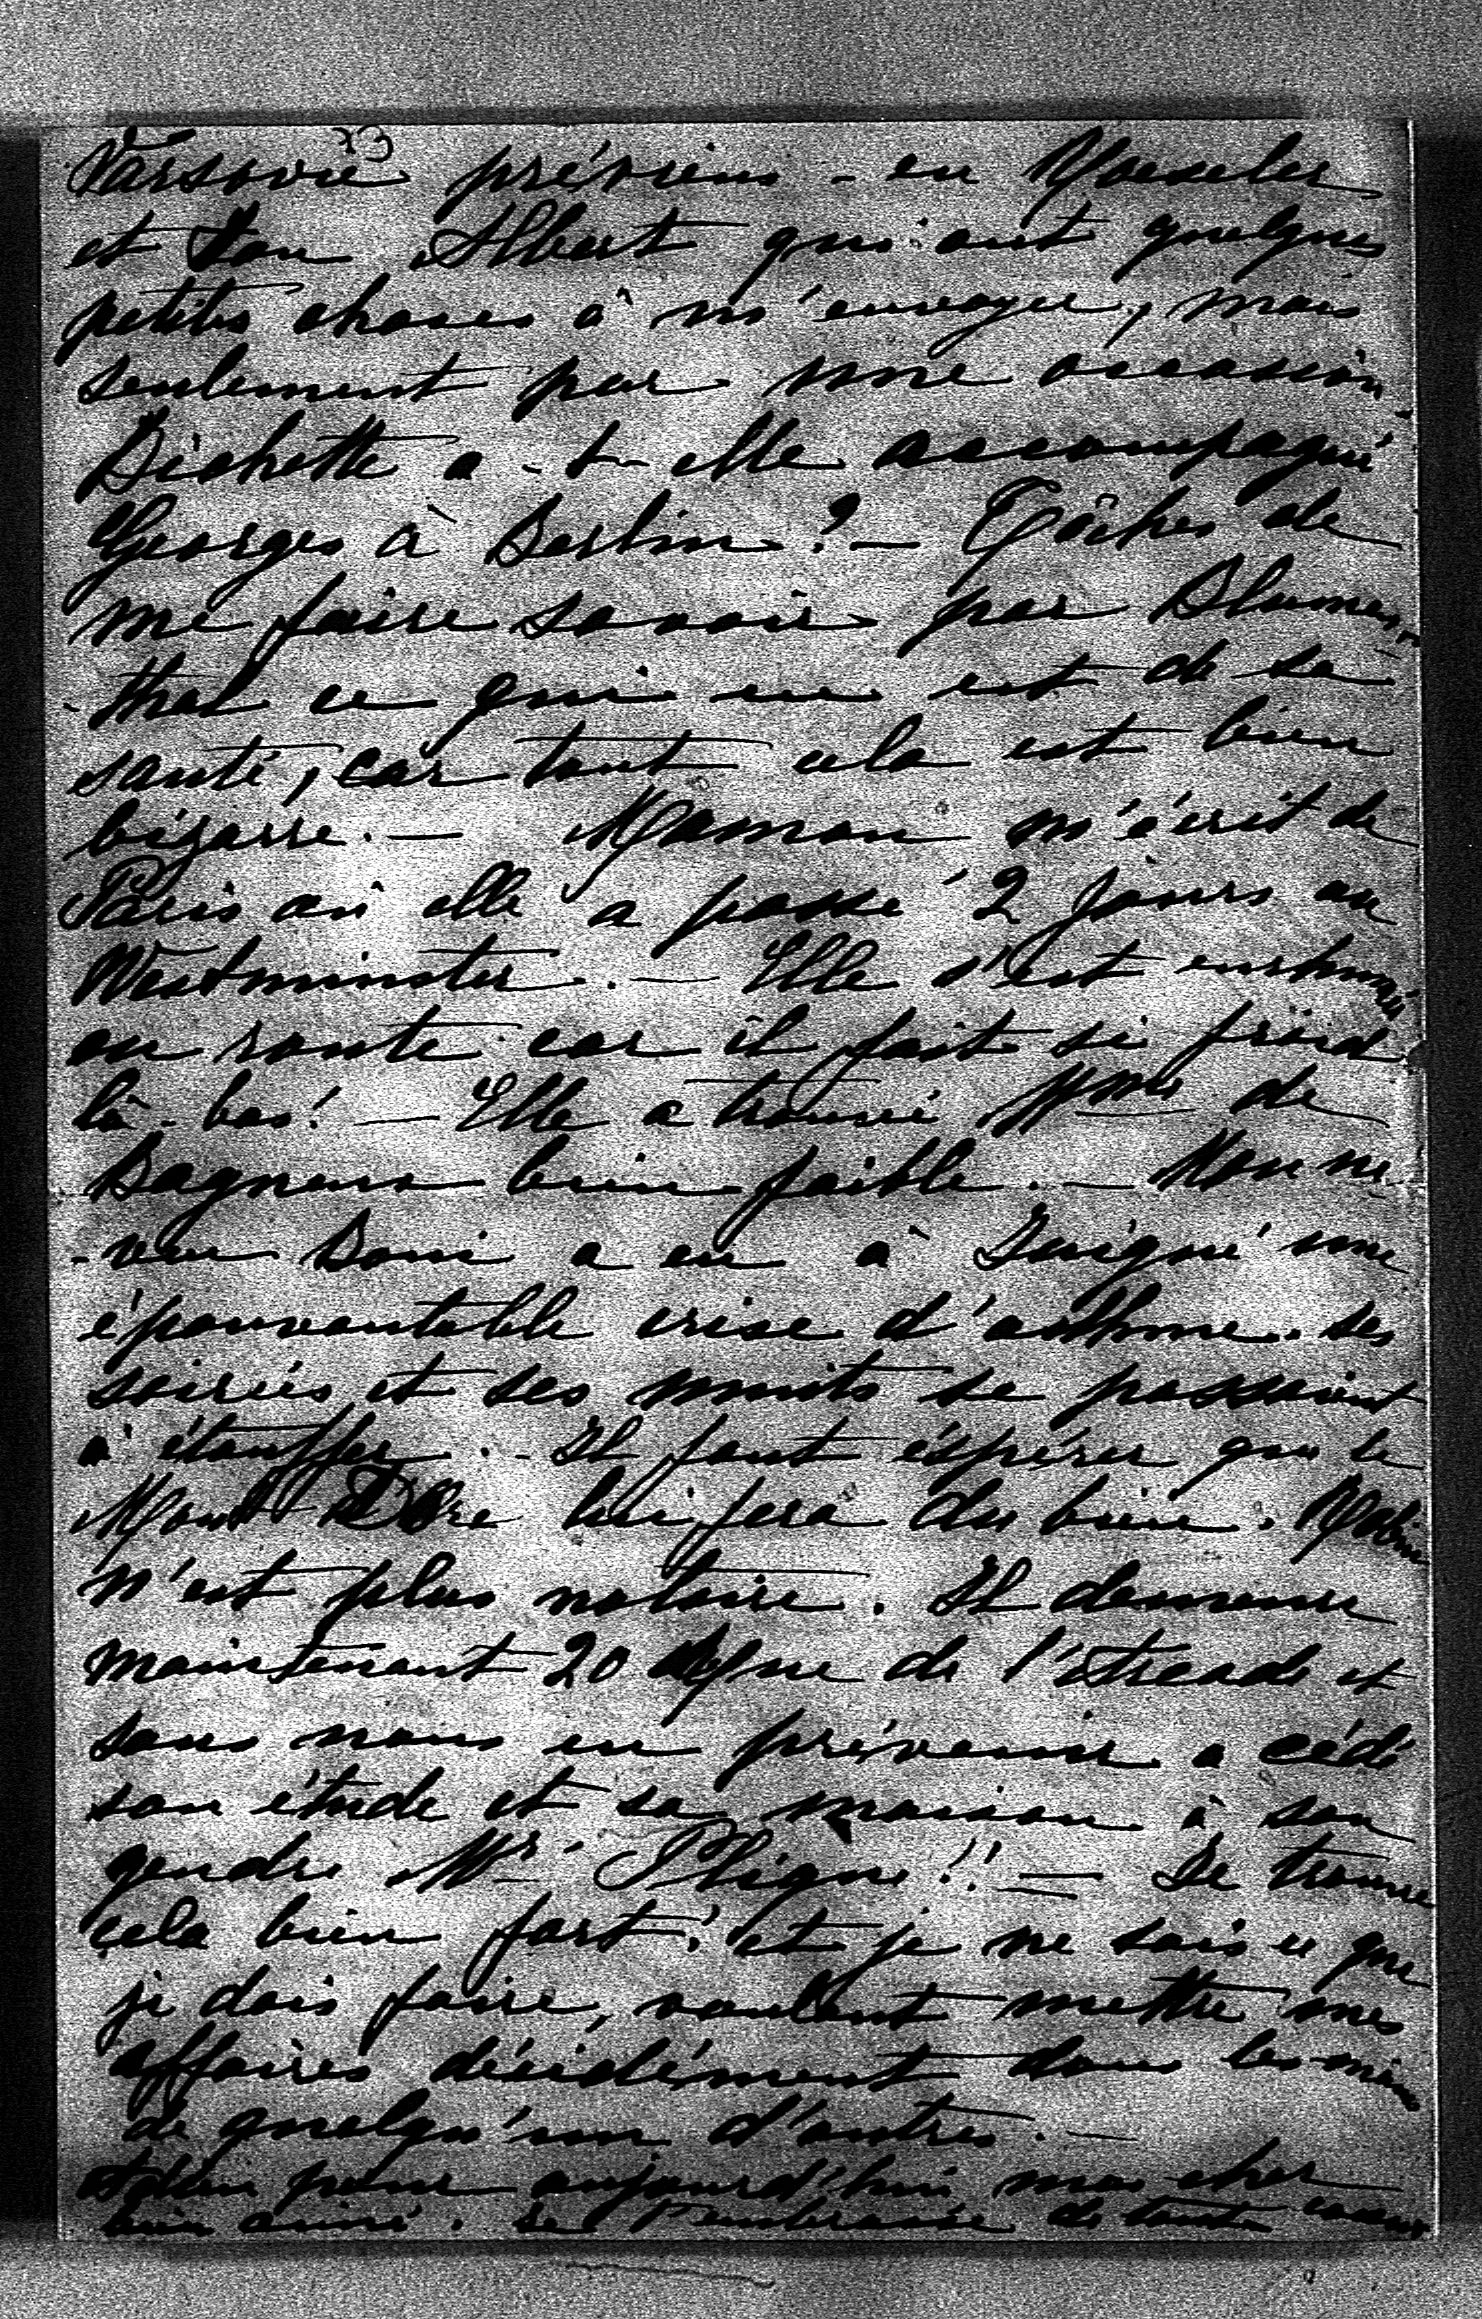 73
Varsovie préviens-en
et ton Albert qui ont quelques
petites choses à m'envoyer, mais
seulement par une occasion.
Bichette a-t-elle accompagné
Georges à Berlin? — Tâches de
me faire savoir par Blumen-
-thal ce qui en est de sa
santé, car tout cela est bien
bizarre. — Maman m'écrit de
Paris où elle a passé 2 jours au
Westminster. — Elle s'est enrhumée
en route car il fait si froid
là-bas! — Elle a trouvé Mme de
bien faible. — Mon ne-
-veu Boni a eu à une
épouvantable crise d'asthme. Ses
soirées et ses nuits se passaient
à étouffer. — Il faut éspérer que le
Mont Dore lui fera du bien.
n'est plus notaire. Il demeure
maintenant 20 de et
sans nous en prévenir a cédé
son étude et sa maison à son
gendre Mr !! — Je trouve
cela bien fort! et je ne sais ce que
je dois faire, voulant mettre mes
affaires décidément dans les mains
de quelqu'un d'autres. —
Adieu pour aujourd'hui mon cher
bien aimé. Je t'embrasse de tout coeur